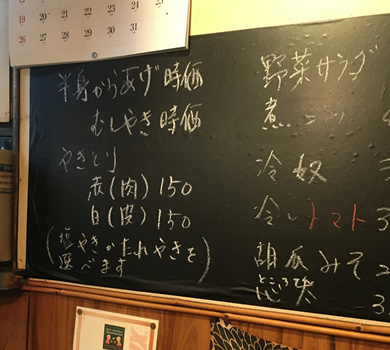 19 20 21 22 23 24 25
26 27 28 29 30 31
半身からあげ 時価
むしやき 時価
やきとり
(肉) 150
(皮) 150
(塩やきかたれやきを
選べます)
野菜サラダ
煮
冷奴
冷しトマト 3
胡瓜みそ 2
ところ天